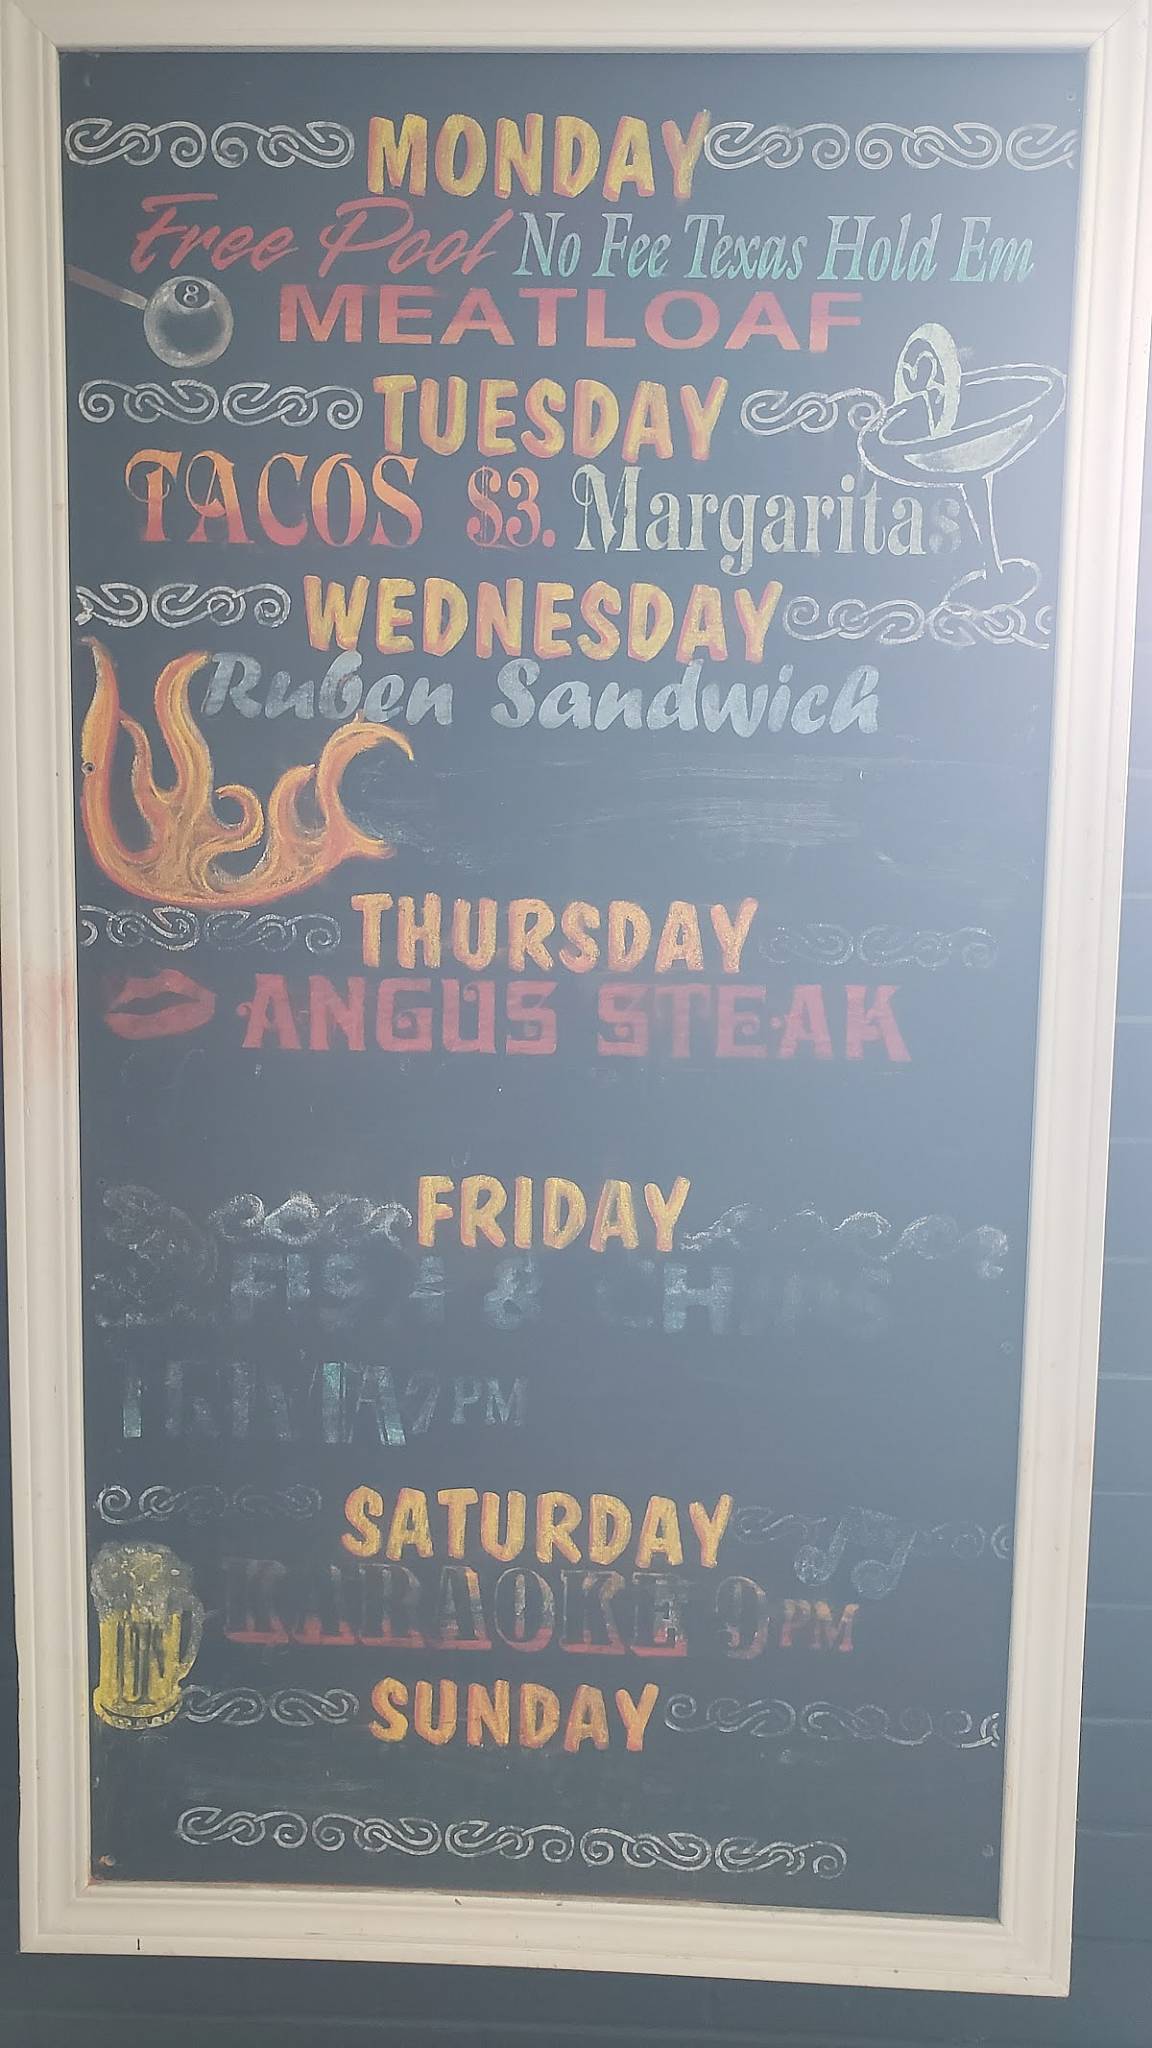 MONDAY
Free Pool No Fee Texas Hold Em
8
MEATLOAF
TUESDAY
TACOS $3. Margaritas
WEDNESDAY
Ruben Sandwich
THURSDAY
ANGUS STEAK
FRIDAY
FISH & CHIPS
TRIVIA 7 PM
SATURDAY
KARAOKE 9 PM
SUNDAY